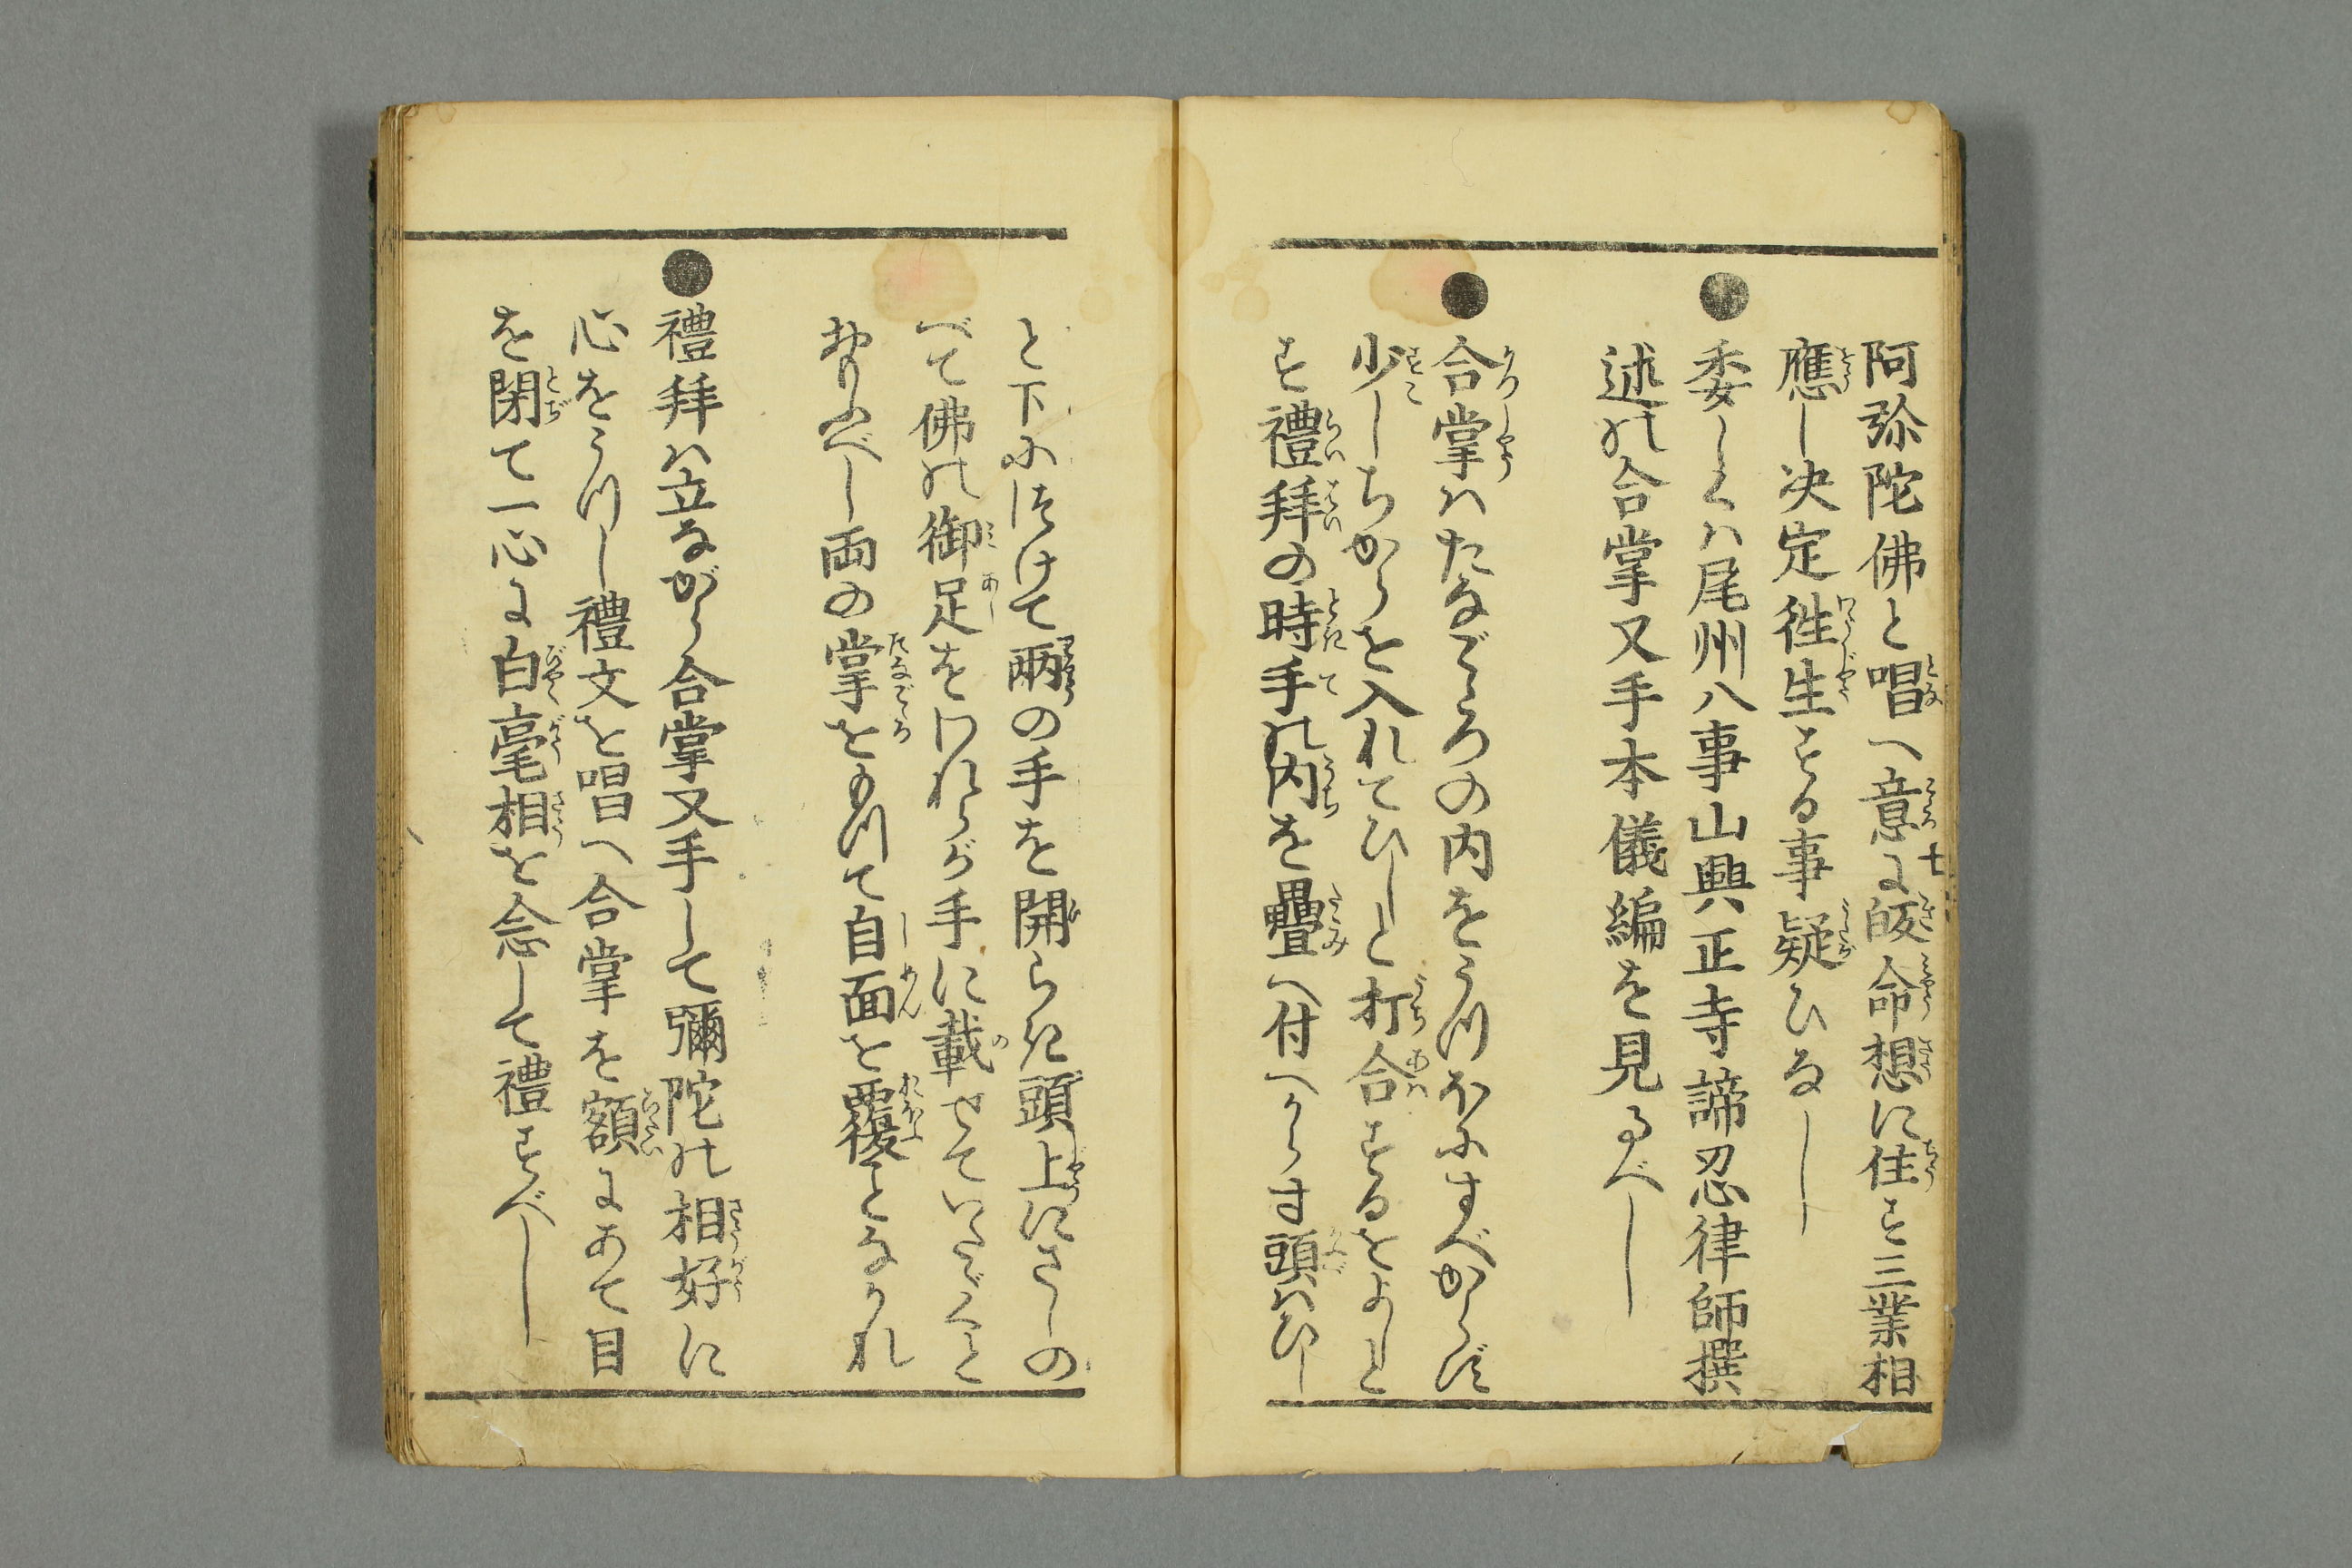 阿弥陀佛と唱へ意に皈命想に住す三業相
應し决定徃生する事疑ひなし
●委しくハ尾州八事山興正寺諦忍律師撰
述の合掌叉手本儀編を見るべし
●合掌ハたなごゝろの内をうつほにすべからず
少しちからを入れてひしと打合するをよしと
す禮拜の時手の内を疊へ付へからす頭ハひし
と下につけて兩の手を開らき頭上にさしの
べて佛の御足をわれらが手に載せていたゞくと
おもふべし両の掌をもつて自面を覆ことなかれ
●禮拜ハ立ながら合掌叉手して彌陀の相好に
心をうつし禮文を唱へ合掌を額にあて目
を閉て一心に白毫相を念して禮すべし